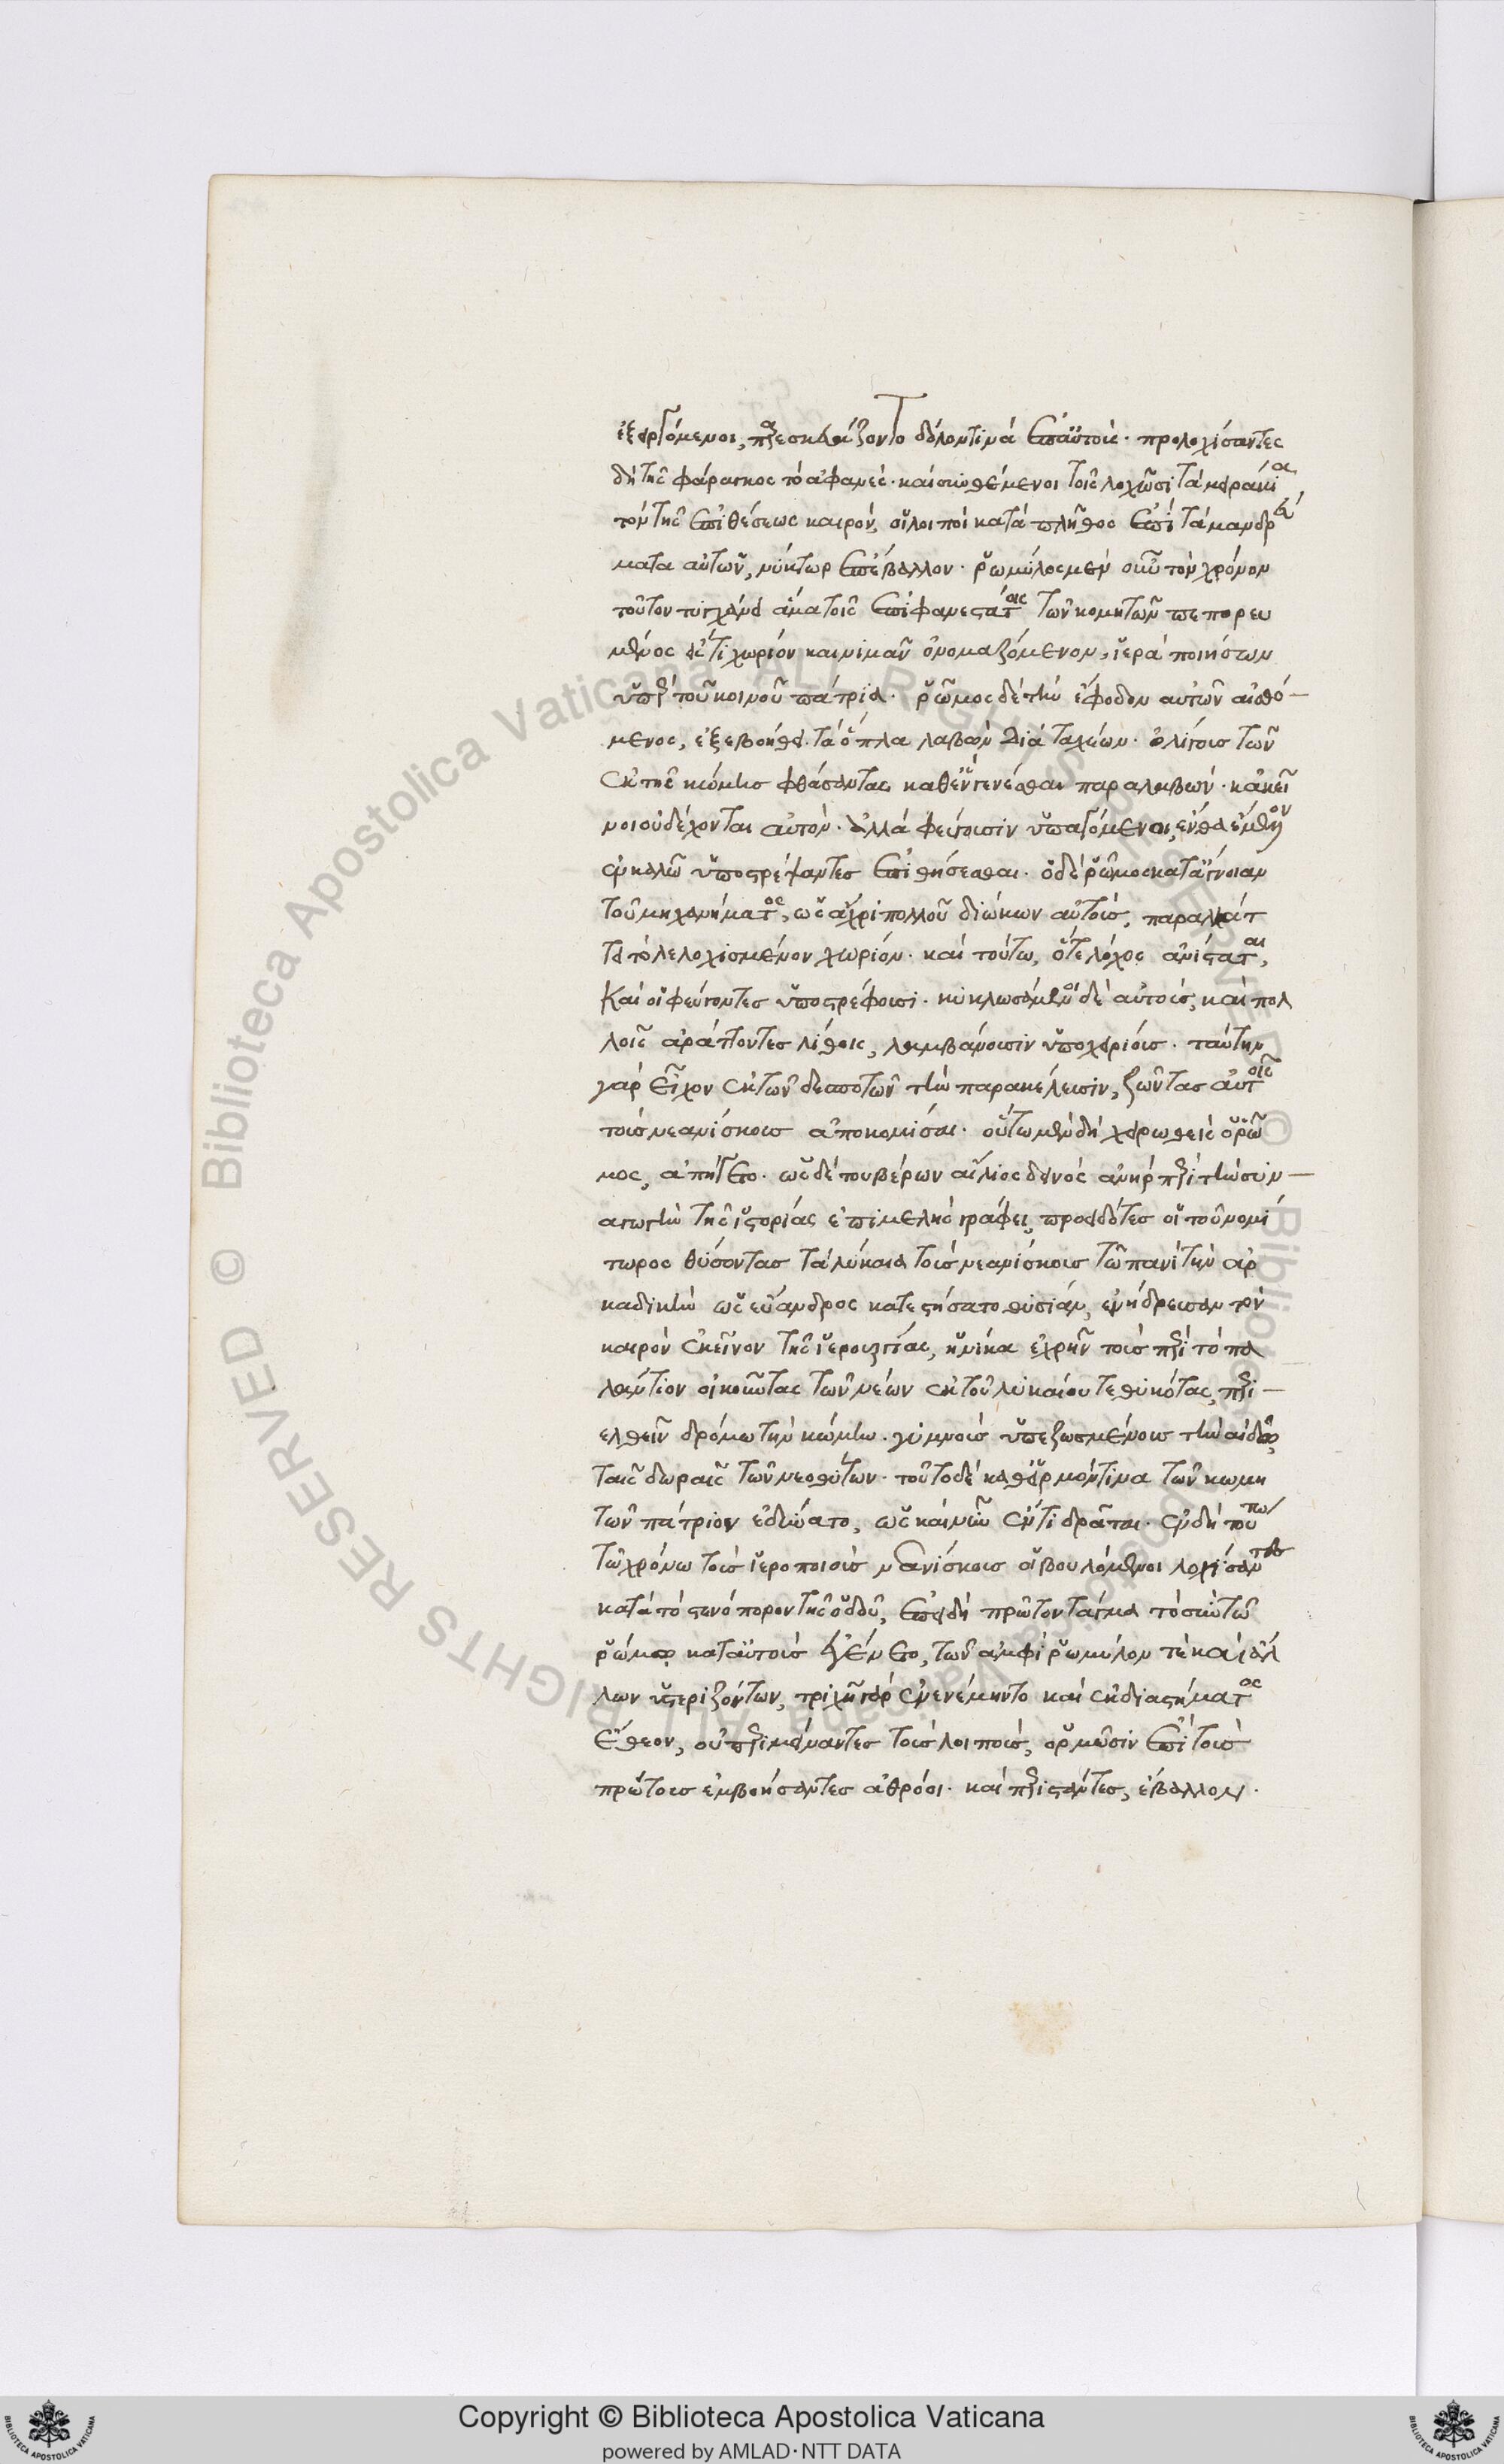 ἐξειργόμενοι, παρεσκευάζοντο δόλον τινὰ ἐπ' αὐτοῖς. προλοχίσαντες
δὴ τῆς φάραγγος τὸ ἀφανές. καὶ συνθέμενοι τοῖς λοχῶσι τὰ μειράκια
τὸν τῆς ἐπιθέσεως καιρόν, οἱ λοιποὶ κατὰ πλῆθος ἐπὶ τὰ μανδρεύ
ματα αὐτῶν, νύκτωρ ἐπέβαλλον. ῥωμύλος μὲν οὖν τὸν χρόνον
τοῦτον τυγχάνει ἅμα τοῖς ἐπιφανεστάτοις τῶν κομητῶν πεπορευ
μένος εἴς τι χωρίον καινιμᾶν ὀνομαζόμενον, ἱερὰ ποιήσων
ὑπὲρ τοῦ κοινοῦ πάτρια. ῥῶμος δὲ τὴν ἔφοδον αὐτῶν αἰσθό-
μενος, ἐξεβοήθει. τὰ ὅπλα λαβὼν διὰ ταχέων. ὀλίγους τῶν
ἐκ τῆς κώμης φθάσαντας καθ' ἓν γενέσθαι παραλαβών. κἀκεῖ
νοι οὐ δέχονται αὐτόν. ἀλλὰ φεύγουσιν ὑπαγόμενοι, ἔνθα ἔμελλον
ἐν καλῷ ὑποστρέψαντες ἐπιθήσεσθαι. ὁ δὲ ῥῶμος κατ' ἄγνοιαν
τοῦ μηχανήματος, ὡς ἄχρι πολλοῦ διώκων αὐτούς, παραλλάτ
τει τὸ λελοχισμένον χωρίον. καὶ τούτω, ὅ τε λόχος ἀνίσταται,
καὶ οἱ φεύγοντες ὑποστρέφουσι. κυκλωσάμενοι δὲ αὐτούς, καὶ πολ
λοῖς ἀράττοντες λίθοις, λαμβάνουσιν ὑποχειρίους. ταύτην
γὰρ εἶχον ἐκ τῶν δεσποτῶν τὴν παρακέλευσιν, ζῶντας αὐτοῖς
τοὺς νεανίσκους ἀποκομίσαι. οὕτω μὲν δὴ χειρωθεὶς ὁ ῥῶ
μος, ἀπήγετο. ὡς δὲ τουβέρων αἴλιος δεινὸς ἀνὴρ περὶ τὴν συν-
αγωγὴν τῆς ἱστορίας ἐπιμελὴς γράφει, προειδότες οἱ τοῦ νομί
τωρος θύσοντας τὰ λύκαια τοὺς νεανίσκους τῷ πανὶ τὴν ἀρ
καδικὴν ὡς εὔανδρος κατεστήσατο θυσίαν, ἐνήδρευσαν τὸν
καιρὸν ἐκεῖνον τῆς ἱερουργίας, ἡνίκα ἐχρῆν τοὺς περὶ τὸ πα
λάντιον οἰκοῦντας τῶν νέων ἐκ τοῦ λυκαίου τεθυκότας, περι-
ελθεῖν δρόμω τὴν κώμην. γυμνοὺς ὑπεζωσμένους τὴν αἰδῶ,
ταῖς δωραῖς τῶν νεοθύτων. τοῦτο δὲ καθαρμόν τινα τῶν κωμη
τῶν πάτριον ἐδύνατο, ὡς καὶ νῦν ἔτι δρᾶται. ἐν δὴ τούτω
τῷ χρόνω τοὺς ἱεροποιοὺς νεανίσκους οἱ βουλόμενοι λοχίσαντες
κατὰ τὸ στενόπορον τῆς ὁδοῦ, ἐπειδὴ πρῶτον τάγμα τὸ σὺν τῷ
ῥώμω κατ' αὐτοὺς ἐγένετο, τῶν ἀμφὶ ῥωμύλον τὲ καὶ ἄλ
λων ὑστεριζόντων, τριχῇ γὰρ ἐνενέμηντο καὶ ἐκ διαστήματος
ἔθεον, οὐ περιμείναντες τοὺς λοιπούς, ὁρμῶσιν ἐπὶ τοὺς
πρώτους ἐμβοήσαντες ἀθρόοι. καὶ περιστάντες, ἔβαλλον.
Copyright © Biblioteca Apostolica Vaticana
powered by AMLAD·NTT DATA